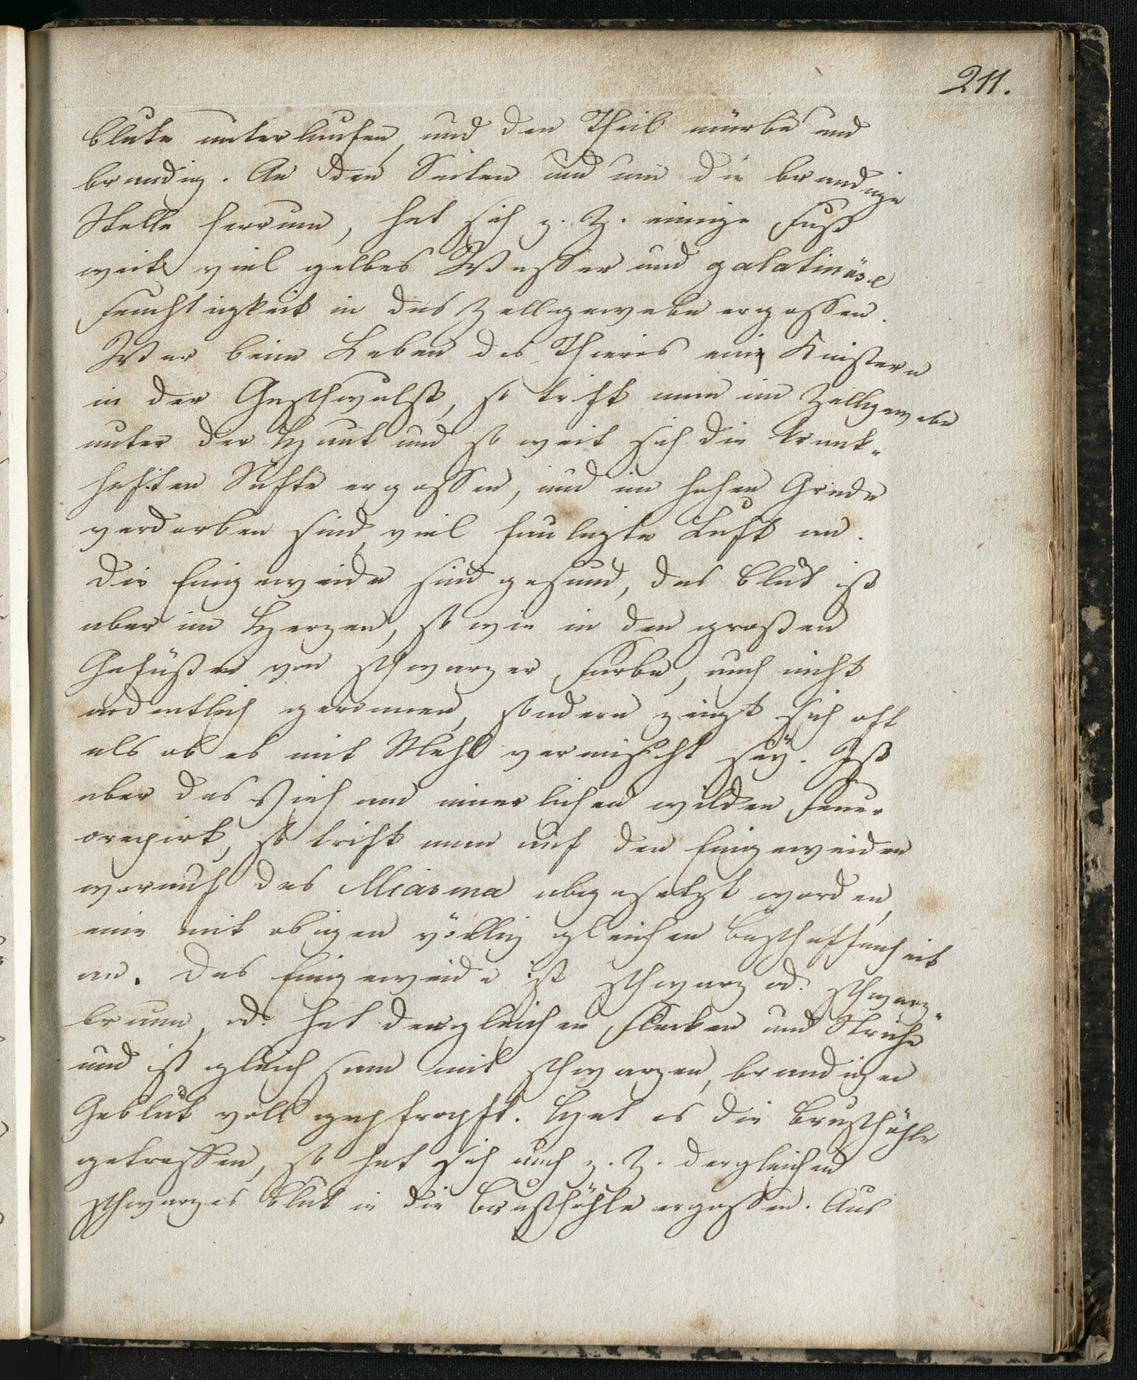 211.
blute unterlaufen, und der Theil mürbe und
brandig. An den Seiten und um die brandige
Stelle herrum, hat sich z. Z. einige Fuß
weit viel gelbes Wasser und galatinöse
Feuchtigkeit in das Zellgewebe ergossen.
War beim Leben des Thieres ein Knistern
in der Geschwulst, so trift man im Zellgewebe
unter der Haut und so weit sich die krank-
haften Säfte ergossen, und im hohen Grade
verdorben sind, viel fauligte Luft an.
Die Eingeweide sind gesund, das Blut ist
aber im Herzen, so wie in den großen
Gefäßen von schwarzer Farbe, auch nicht
ordentlich geronnen, sondern zeigt sich oft
als ob es mit Mehl vermischt sey. Ist
aber das Vieh am innerlichen wilden Feuer
crepirt, so trift man auf den Eingeweiden
worauf das Miasma abgesetzt worden,
eine mit obigen völlig gleichen Beschaffenheit
an. Das Eingeweide ist schwarz od. schwarz
braun, od. hat dergleichen Flecken und Striche
und ist gleichsam mit schwarzen, brandigen
Geblüt voll gepfropft. Hat es die Brusthöhle
getroffen, so hat sich auch z. Z. dergleichen
schwarzes Blut in die Brusthöhle ergossen. Aus